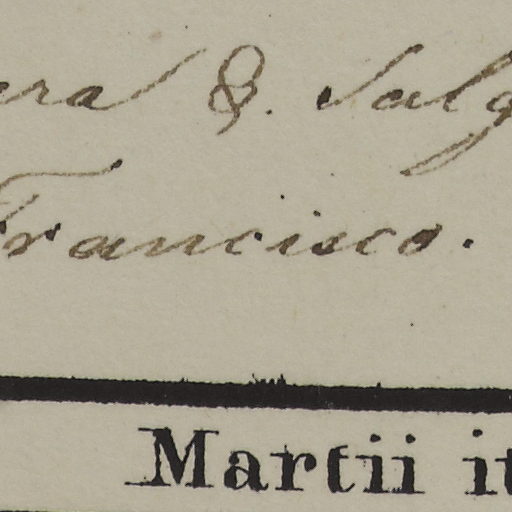 & Salg
Francisco.
Martii it